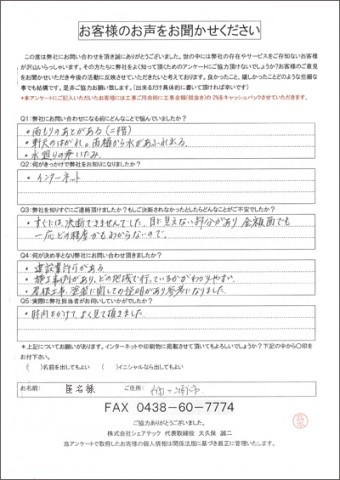 お客様のお声をお聞かせください
この度は弊社にお問い合わせを頂き誠にありがとうございました。世の中には弊社の存在やサービスをご存知ないお客様
が沢山いらっしゃいます。その方たちに弊社をよく知って頂くためのアンケートにご協力頂けないでしょうか？お客様のご意見
をお聞かせいただき今後の活動に反映させていただきたいと考えております。良かったこと、嬉しかったことどのような些細な
事でも結構です。是非ご協力お願い致します。（出来るだけ具体的に書いて頂ければ幸いです）
＊本アンケートにご記入いただいたお客様には工事ご用命時に工事金額（税抜き）の2%をキャッシュバックさせていただきます。
Q1：弊社にお問い合わせになる前にどんなことで悩んでいましたか？
・雨もりのあとがある（二階）
・軒天のはがれ。雨樋から水があふれ出る。
・水廻りの
Q2：何がきっかけで弊社をお知りになりましたか？
・インターネット
Q3：弊社を知りすぐにご連絡頂けましたか？もしご決断されなかったとしたらどんなことがご不安でしたか？
・すぐには、決断できませんでした。目に見えない部分があり金額面でも
どの程度かもわからないので。
Q4：何が決め手となり弊社にお問い合わせ頂けましたか？
・建設業許可がある
・施工事例があり、どの地域で行っているかがわかりやすい。
・屋根工事、塗装に関しての説明があり参考になりました。
Q5：実際に弊社担当者がお伺いしていかがでしたか？
・時間をかけて、よく見て頂きました。
＊上記についてお願いがあります。インターネットや印刷物に掲載させて頂いてもよろしいでしょうか？下記の中から〇印を
お付下さい。
（　）名前を出してもよい （　）イニシャルなら出してもよい
お名前： 匿名様 ご住所：
FAX 0438-60-7774
ご協力ありがとうございました。
株式会社シェアテック 代表取締役 大久保 誠二
当アンケートで取得したお客様の個人情報は関係法規に基づき厳正に管理いたします。